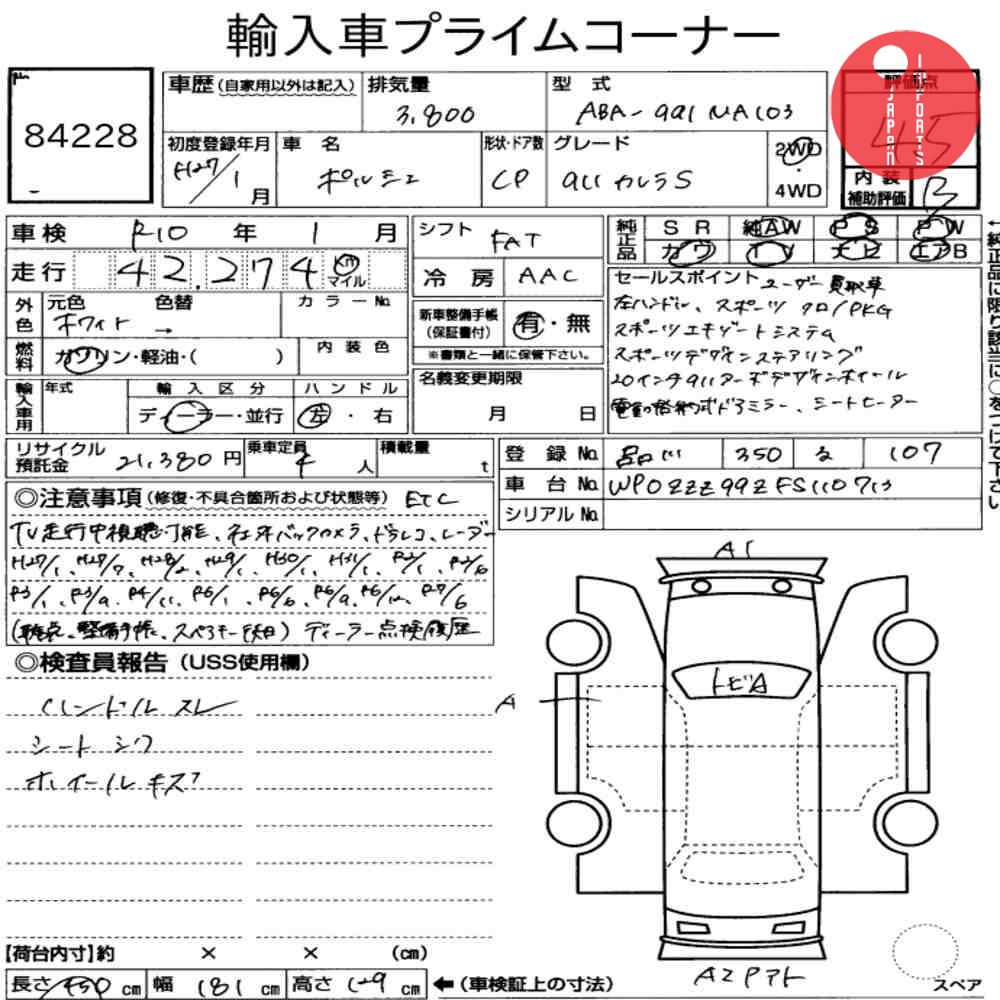 輸入車プライムコーナー
No.
84228
車歴 (自家用以外は記入)
排気量
3,800
型式
ABA-991MA103
評価点
4.5
JAPAN IMPORTS
初度登録年月
H27/1月
車名
ポルシェ
形状・ドア数
CP
グレード
911カレラS
2WD・4WD
内装補助評価
B
車検 R10年 1月
走行 42,274 Km マイル
シフト
FAT
冷房 AAC
純正品
SR 純AW PS PW
カワ TV ナビ エアB
←純正品に限り該当に○をつけて下さい
外色
元色
ホワイト
色替
→
カラーNo.
燃料
ガソリン・軽油・( )
内装色
新車整備手帳(保証書付)
有・無
※書類と一緒に保管下さい。
セールスポイント ユーザー買取車
左ハンドル、スポーツクロノPKG
スポーツエキゾーストシステム
スポーツデザインステアリング
20インチ911ターボデザインホイール
電動格納ドアミラー、シートヒーター
輸入車用
年式
輸入区分
ディーラー・並行
ハンドル
左・右
名義変更期限
月 日
リサイクル預託金 21,380円
乗車定員 4人
積載量 t
登録No. 品川 350 る 107
車台No. WP0ZZZ99ZFS110713
シリアルNo.
◎注意事項 (修復・不具合箇所および状態等) ETC
TV走行中視聴可能、社外バックカメラ、ドラレコ、レーダー
H27/1、H27/7、H28/2、H29/1、H30/1、H31/1、R2/1、R2/6
R3/1、R3/9、R4/11、R6/1、R6/6、R6/9、R6/12、R7/6
(取説、整備手帳、スペアキー) ディーラー点検履歴
◎検査員報告 (USS使用欄)
ハンドル スレ
シート シワ
ホイール キズ
A1
トビA
A
A2 Pアト
スペア
【荷台内寸】約 × × (cm)
長さ 450 cm 幅 181 cm 高さ 129 cm ←(車検証上の寸法)